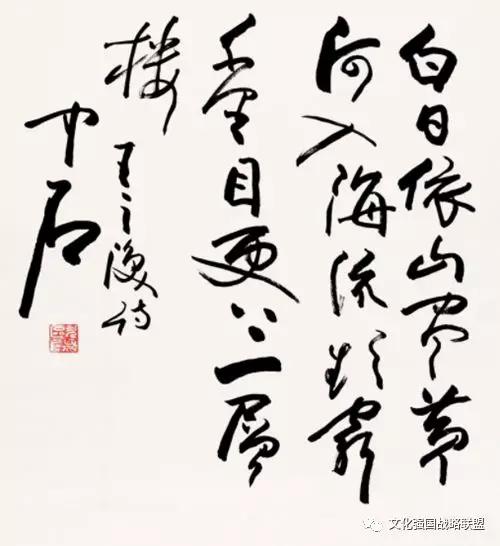 白日依山尽黄
河入海流欲窮
千里目更上一層
楼 王之渙诗
中石
文化强国战略联盟